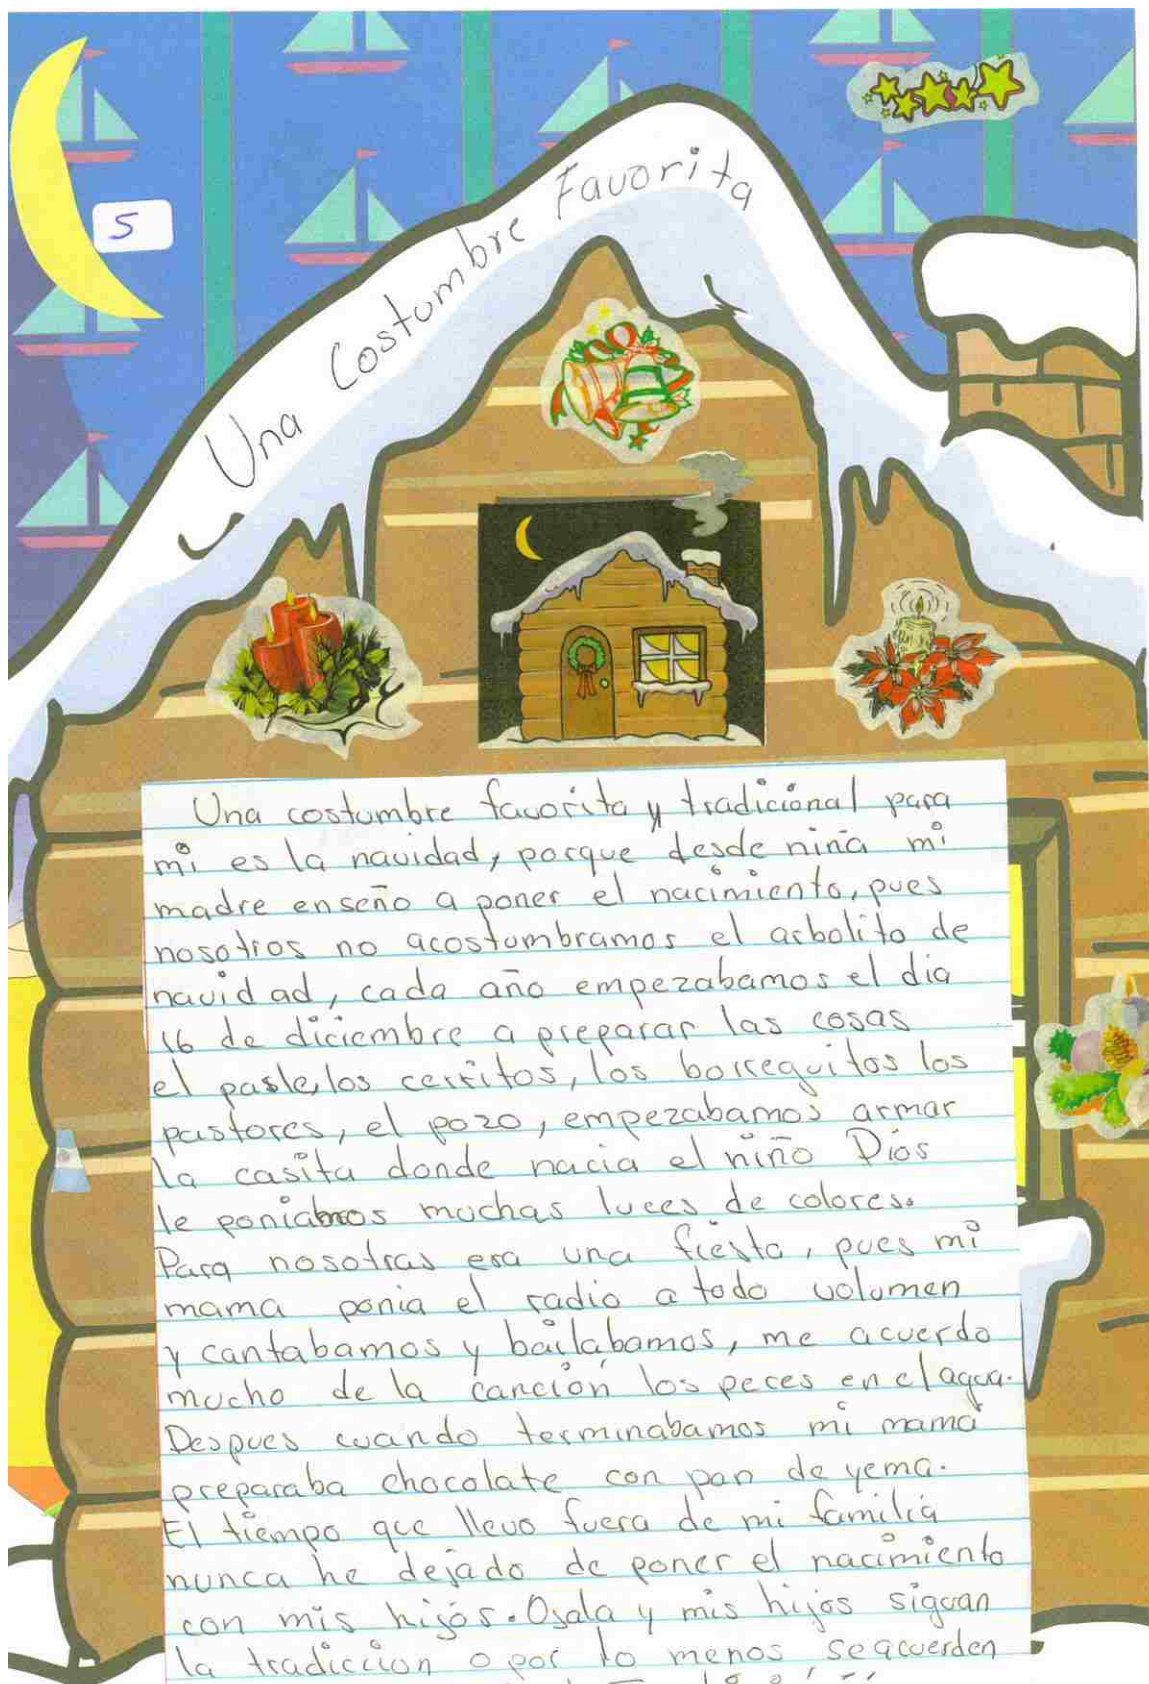 5
Una Costumbre Favorita
Una costumbre favorita y tradicional para
mi es la navidad, porque desde niña mi
madre enseño a poner el nacimiento, pues
nosotros no acostumbramos el arbolito de
navidad, cada año empezabamos el dia
16 de diciembre a preparar las cosas
el pasle, los cerritos, los borreguitos los
pastores, el pozo, empezabamos armar
la casita donde nacia el niño Dios
le poniamos muchas luces de colores.
Para nosotras era una fiesta, pues mi
mama ponia el radio a todo volumen
y cantabamos y bailabamos, me acuerdo
mucho de la canción los peces en el agua.
Despues cuando terminabamos mi mamá
preparaba chocolate con pan de yema.
El tiempo que llevo fuera de mi familia
nunca he dejado de poner el nacimiento
con mis hijos. Ojala y mis hijos sigan
la tradiccion o por lo menos se acuerden